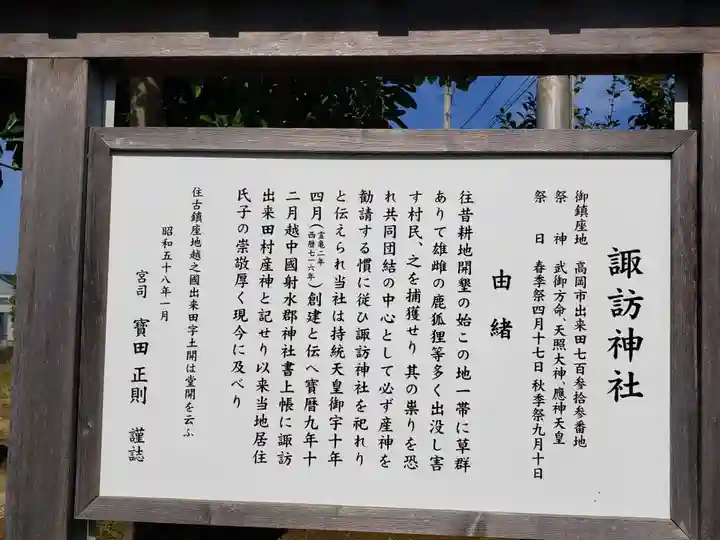 諏訪神社
御鎮座地 高岡市出来田七百参拾参番地
祭神 武御方命、天照大神、應神天皇
祭日 春季祭四月十七日 秋季祭九月十日
由緒
往昔耕地開墾の始この地一帯に草群
ありて雄雌の鹿狐狸等多く出没し害
す村民、之を捕獲せり其の祟りを恐
れ共同団結の中心として必ず産神を
勧請する慣に従ひ諏訪神社を祀れり
と伝えられ当社は持統天皇御宇十年
四月(霊亀二年 西暦七一六年)創建と伝へ寶暦九年十
二月越中國射水郡神社書上帳に諏訪
出来田村産神と記せり以来当地居住
氏子の崇敬厚く現今に及べり
住古鎮座地越之國出来田字土開は堂開を云ふ
昭和五十八年一月
宮司 寳田正則 謹誌